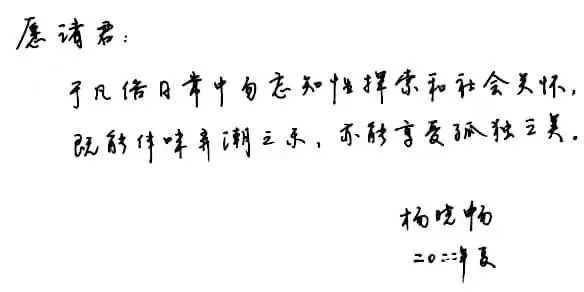 愿诸君：
于凡俗日常中勿忘知性探索和社会关怀，
既能体味弄潮之乐、亦能享受孤独之美。
杨晓畅
二〇二二年夏